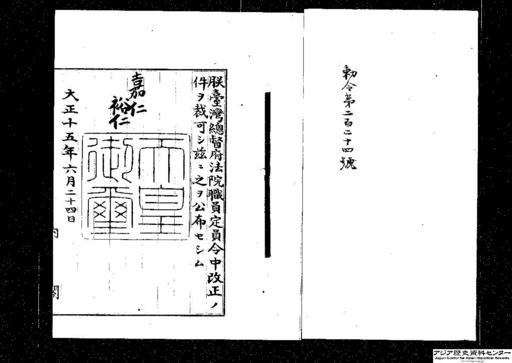 勅令第二百二十四號
朕臺灣總督府法院職員定員令中改正ノ
件ヲ裁可シ茲ニ之ヲ公布セシム
嘉仁
裕仁
天皇
御璽
大正十五年六月二十四日
内閣
アジア歴史資料センター
Japan Center for Asian Historical Records